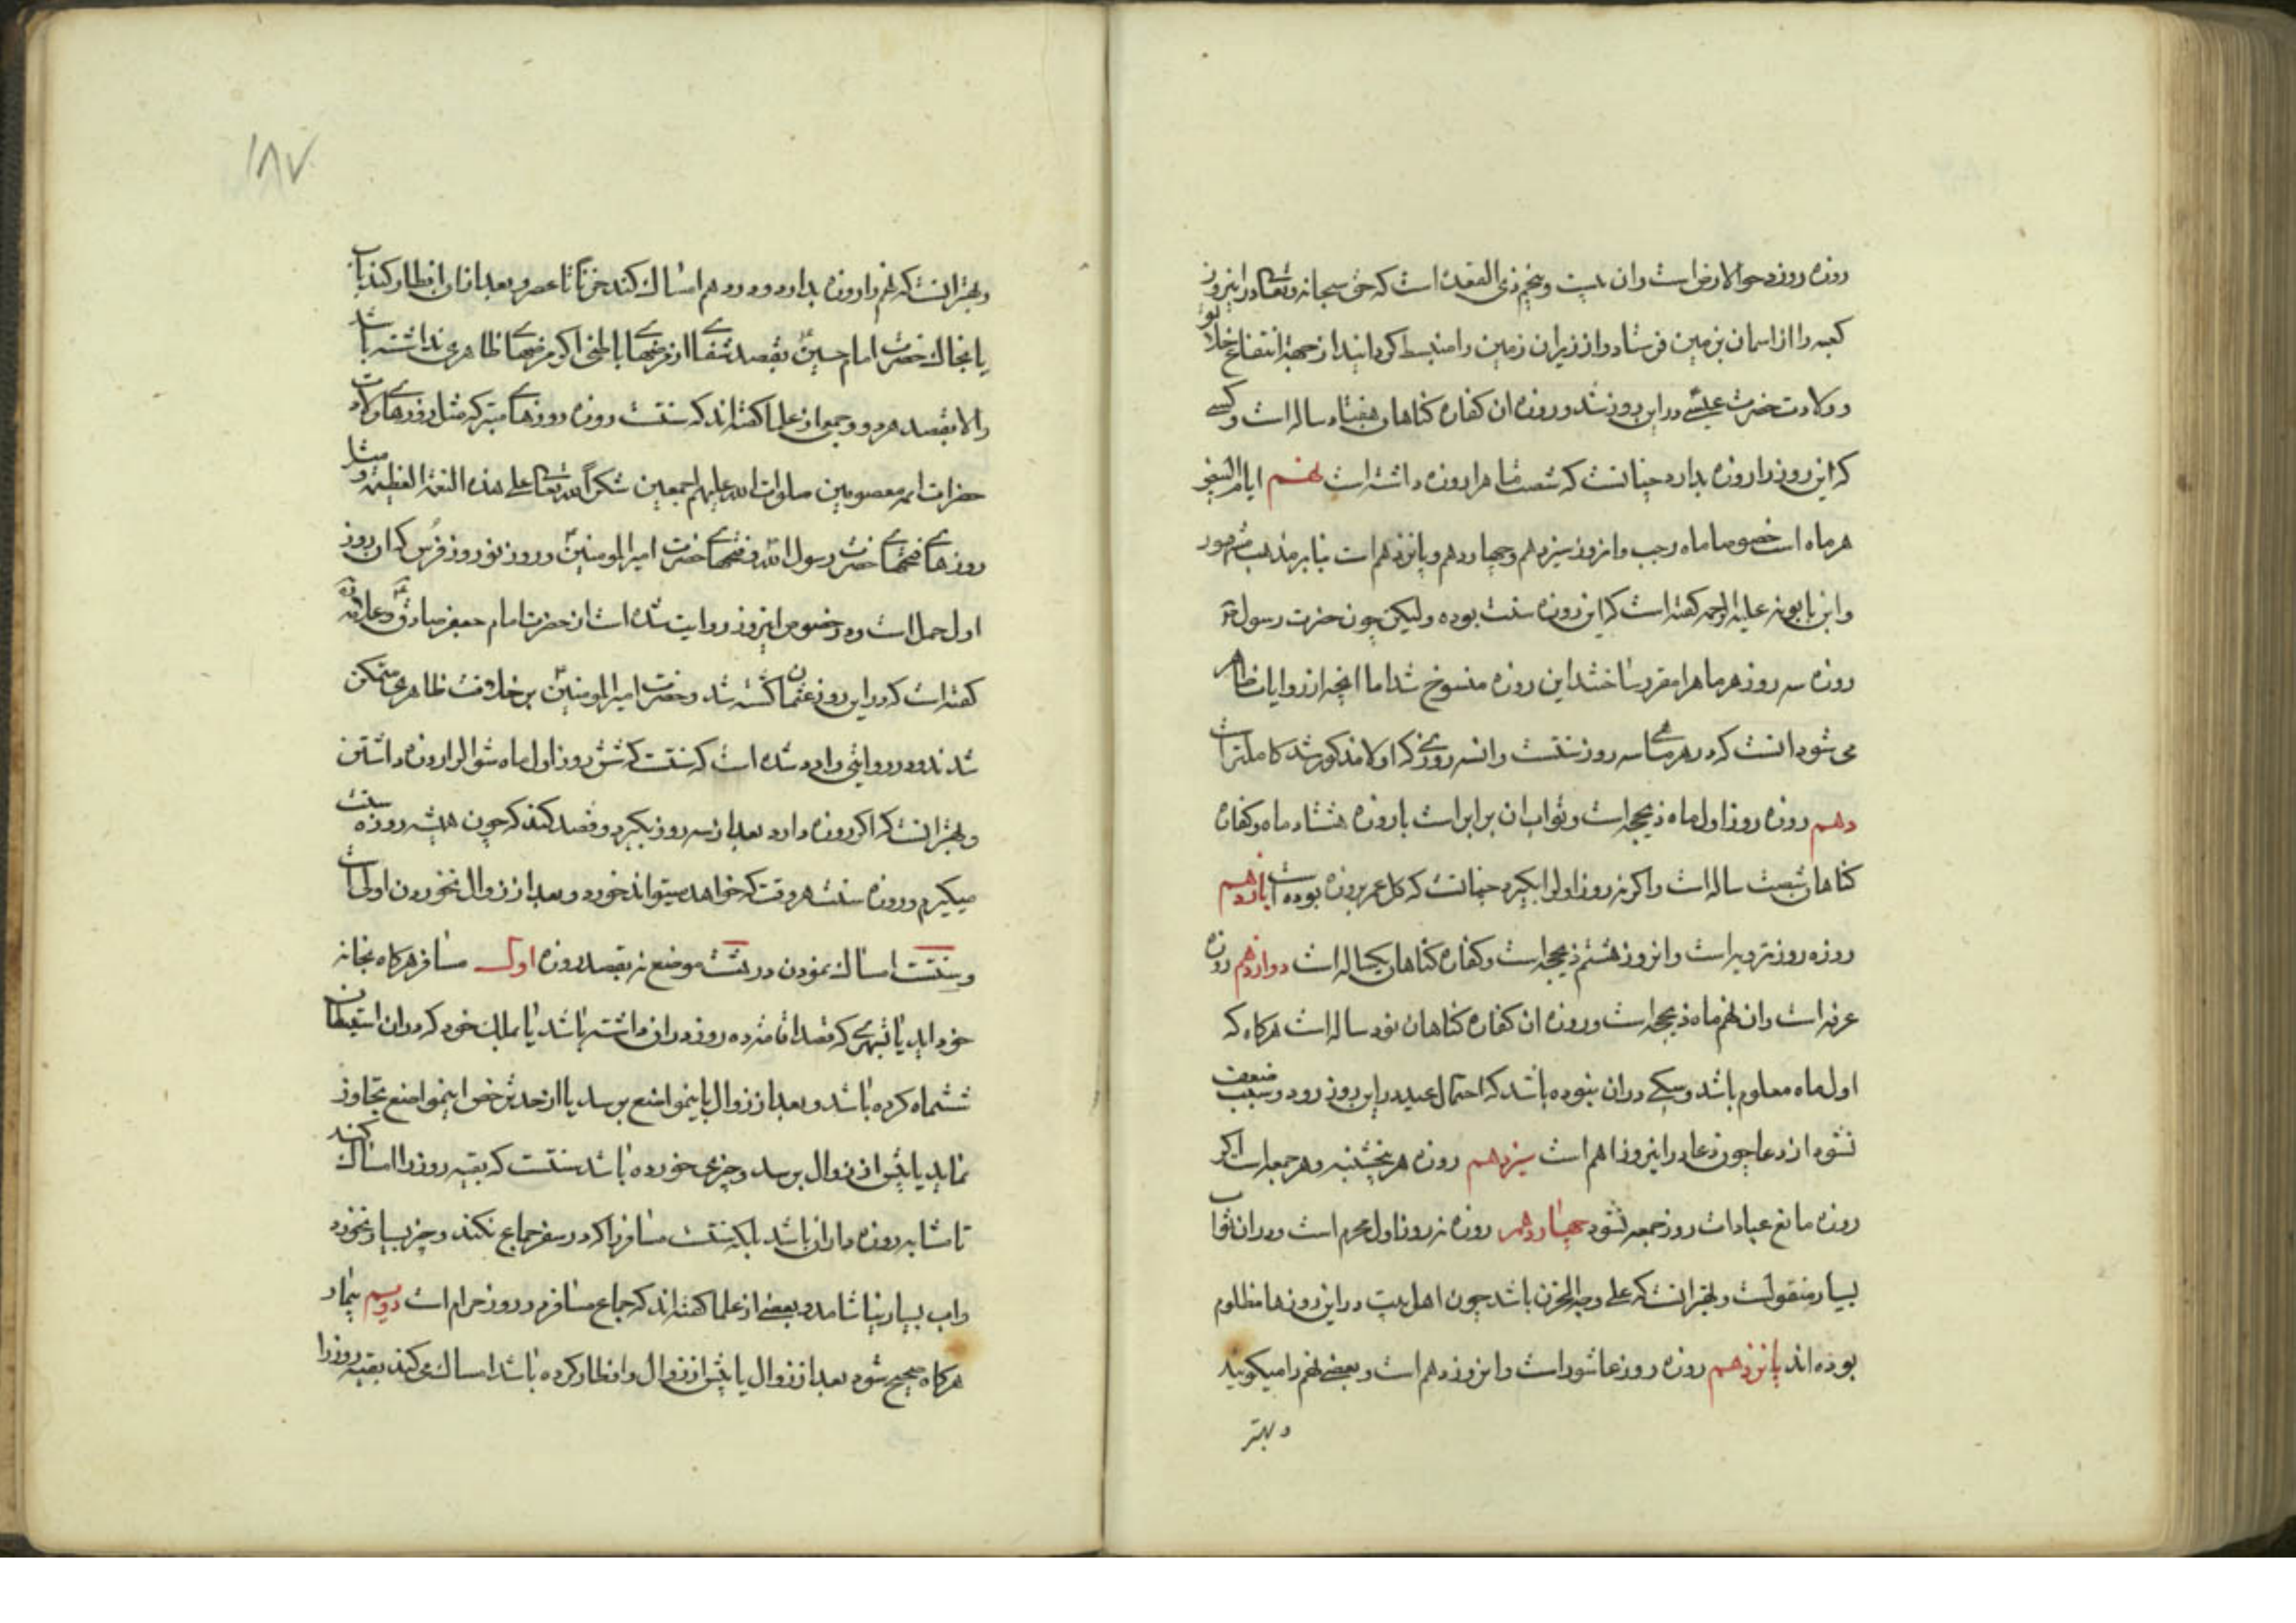 روزه روز دحو الارض است وان بیست وپنجم ذی القعده است که حق سبحانه وتعالی در اینروز
کعبه را از اسمان بزمین فرستاد واز زیر ان زمین را منبسط کردانید از جهة انتفاع خلایق
وولادت حضرت عیسی در این روز شد وروزه ان کفاره کناهان هفتاد ساله است وکسی
که این روز را روزه بدارد چنانست که شصت ماه را روزه داشته است نهم ایام البیض
هر ماه است خصوصا ماه رجب وانروز سیزدهم وچهاردهم وپانزدهم است بنابر مذهب مشهور
وابن بابویه علیه الرحمه کفته است که این روزه سنت بوده ولیکن چون حضرت رسول ص
روزه سه روز هر ماه را مقرر ساختند این روزه منسوخ شد اما انچه از روایات ظاهر
می شود انست که در هر ماهی سه روز سنتست وان سه روزی که اولا مذکور شد کاملتر است
دهم روزه روز اول ماه ذیحجه است وثواب ان برابر است با روزه هشتاد ماه وکفاره
کناهان شصت ساله است واکر نه روز اول را بکیرد چنانست که کل عمر بروزه بوده است یازدهم
روزه روز ترویه است وانروز هشتم ذیحجه است وکفاره کناهان یکساله است دوازدهم روزه
عرفه است وان نهم ماه ذیحجه است وروزه ان کفاره کناهان نود ساله است هرکاه که
اول ماه معلوم باشد وشکی دران نبوده باشد که احتمال عید در این روز رود وسبب ضعف
نشود از دعا چون دعا در اینروز اهم است سیزدهم روزه هر پنجشنبه وهر جمعه است اکر
روزه مانع عبادات روز جمعه نشود چهاردهم روزه نه روز اول محرم است ودران ثواب
بسیار منقولست وبهتر انست که علی وجه الحزن باشد چون اهل بیت در این روزها مظلوم
بوده اند پانزدهم روزه روز عاشوراست وانروز دهم است وبعضی نهم را میکویند
وبهتر
۱۸۷
وبهتر انست که نهم را روزه بدارد ودر دهم امساک کند حزنا تا عصر وبعد ازان افطار کند باب
یا بخاک حضرت امام حسین بقصد شفا از مرضهای باطنی اکر مرضهای ظاهری نداشته باشد
والا بقصد هر دو وجمعی از علما کفته اند که سنتست روزه روزهای متبرکه مثل روزهای ولادت
حضرات ائمه معصومین صلوات الله علیهم اجمعین شکرا لله تعالی علی هذه النعمة العظیمة ومثل
روزهای فتحهای حضرت رسول الله وفتحهای حضرت امیر المومنین وروز نوروز فرس که ان روز
اول حمل است ودر خصوص اینروز روایت شده است از حضرت امام جعفر صادق وعلامه
کفته است که در این روز عثمان کشته شد وحضرت امیر المومنین بر خلافت ظاهری متمکن
شدند ودر روایتی وارد شده است که سنتست که شش روز اول ماه شوال را روزه داشتن
وبهتر انست که اکر روزه دارد بعد از سه روز بکیرد وقصد کند که چون همیشه روزه سنت
میکیرم وروزه سنت هر وقت که خواهد میتواند خورد وبعد از زوال نخوردن اولی است
وسنتست امساک نمودن در هشت موضع نه بقصد روزه اول مسافر هرکاه بخانه
خود اید یا شهری که قصد اقامه ده روز دران داشته باشد یا بملک خود که دران استیطان
ششماه کرده باشد وبعد از زوال باینمواضع برسد یا از حد ترخص اینمواضع تجاوز
نماید یا پیش از زوال برسد وچیزی خورده باشد سنتست که بقیه روز را امساک کند
تا مشابه روزه داران باشد بلکه سنتست مسافر را که در سفر جماع نکند وچیز بسیار نخورد
واب بسیار نیاشامد وبعضی از علما کفته اند که جماع مسافر در روز حرام است دویم بیمار
هرکاه صحیح شود بعد از زوال یا پیش از زوال وافطار کرده باشد امساک می کند بقیه روز را